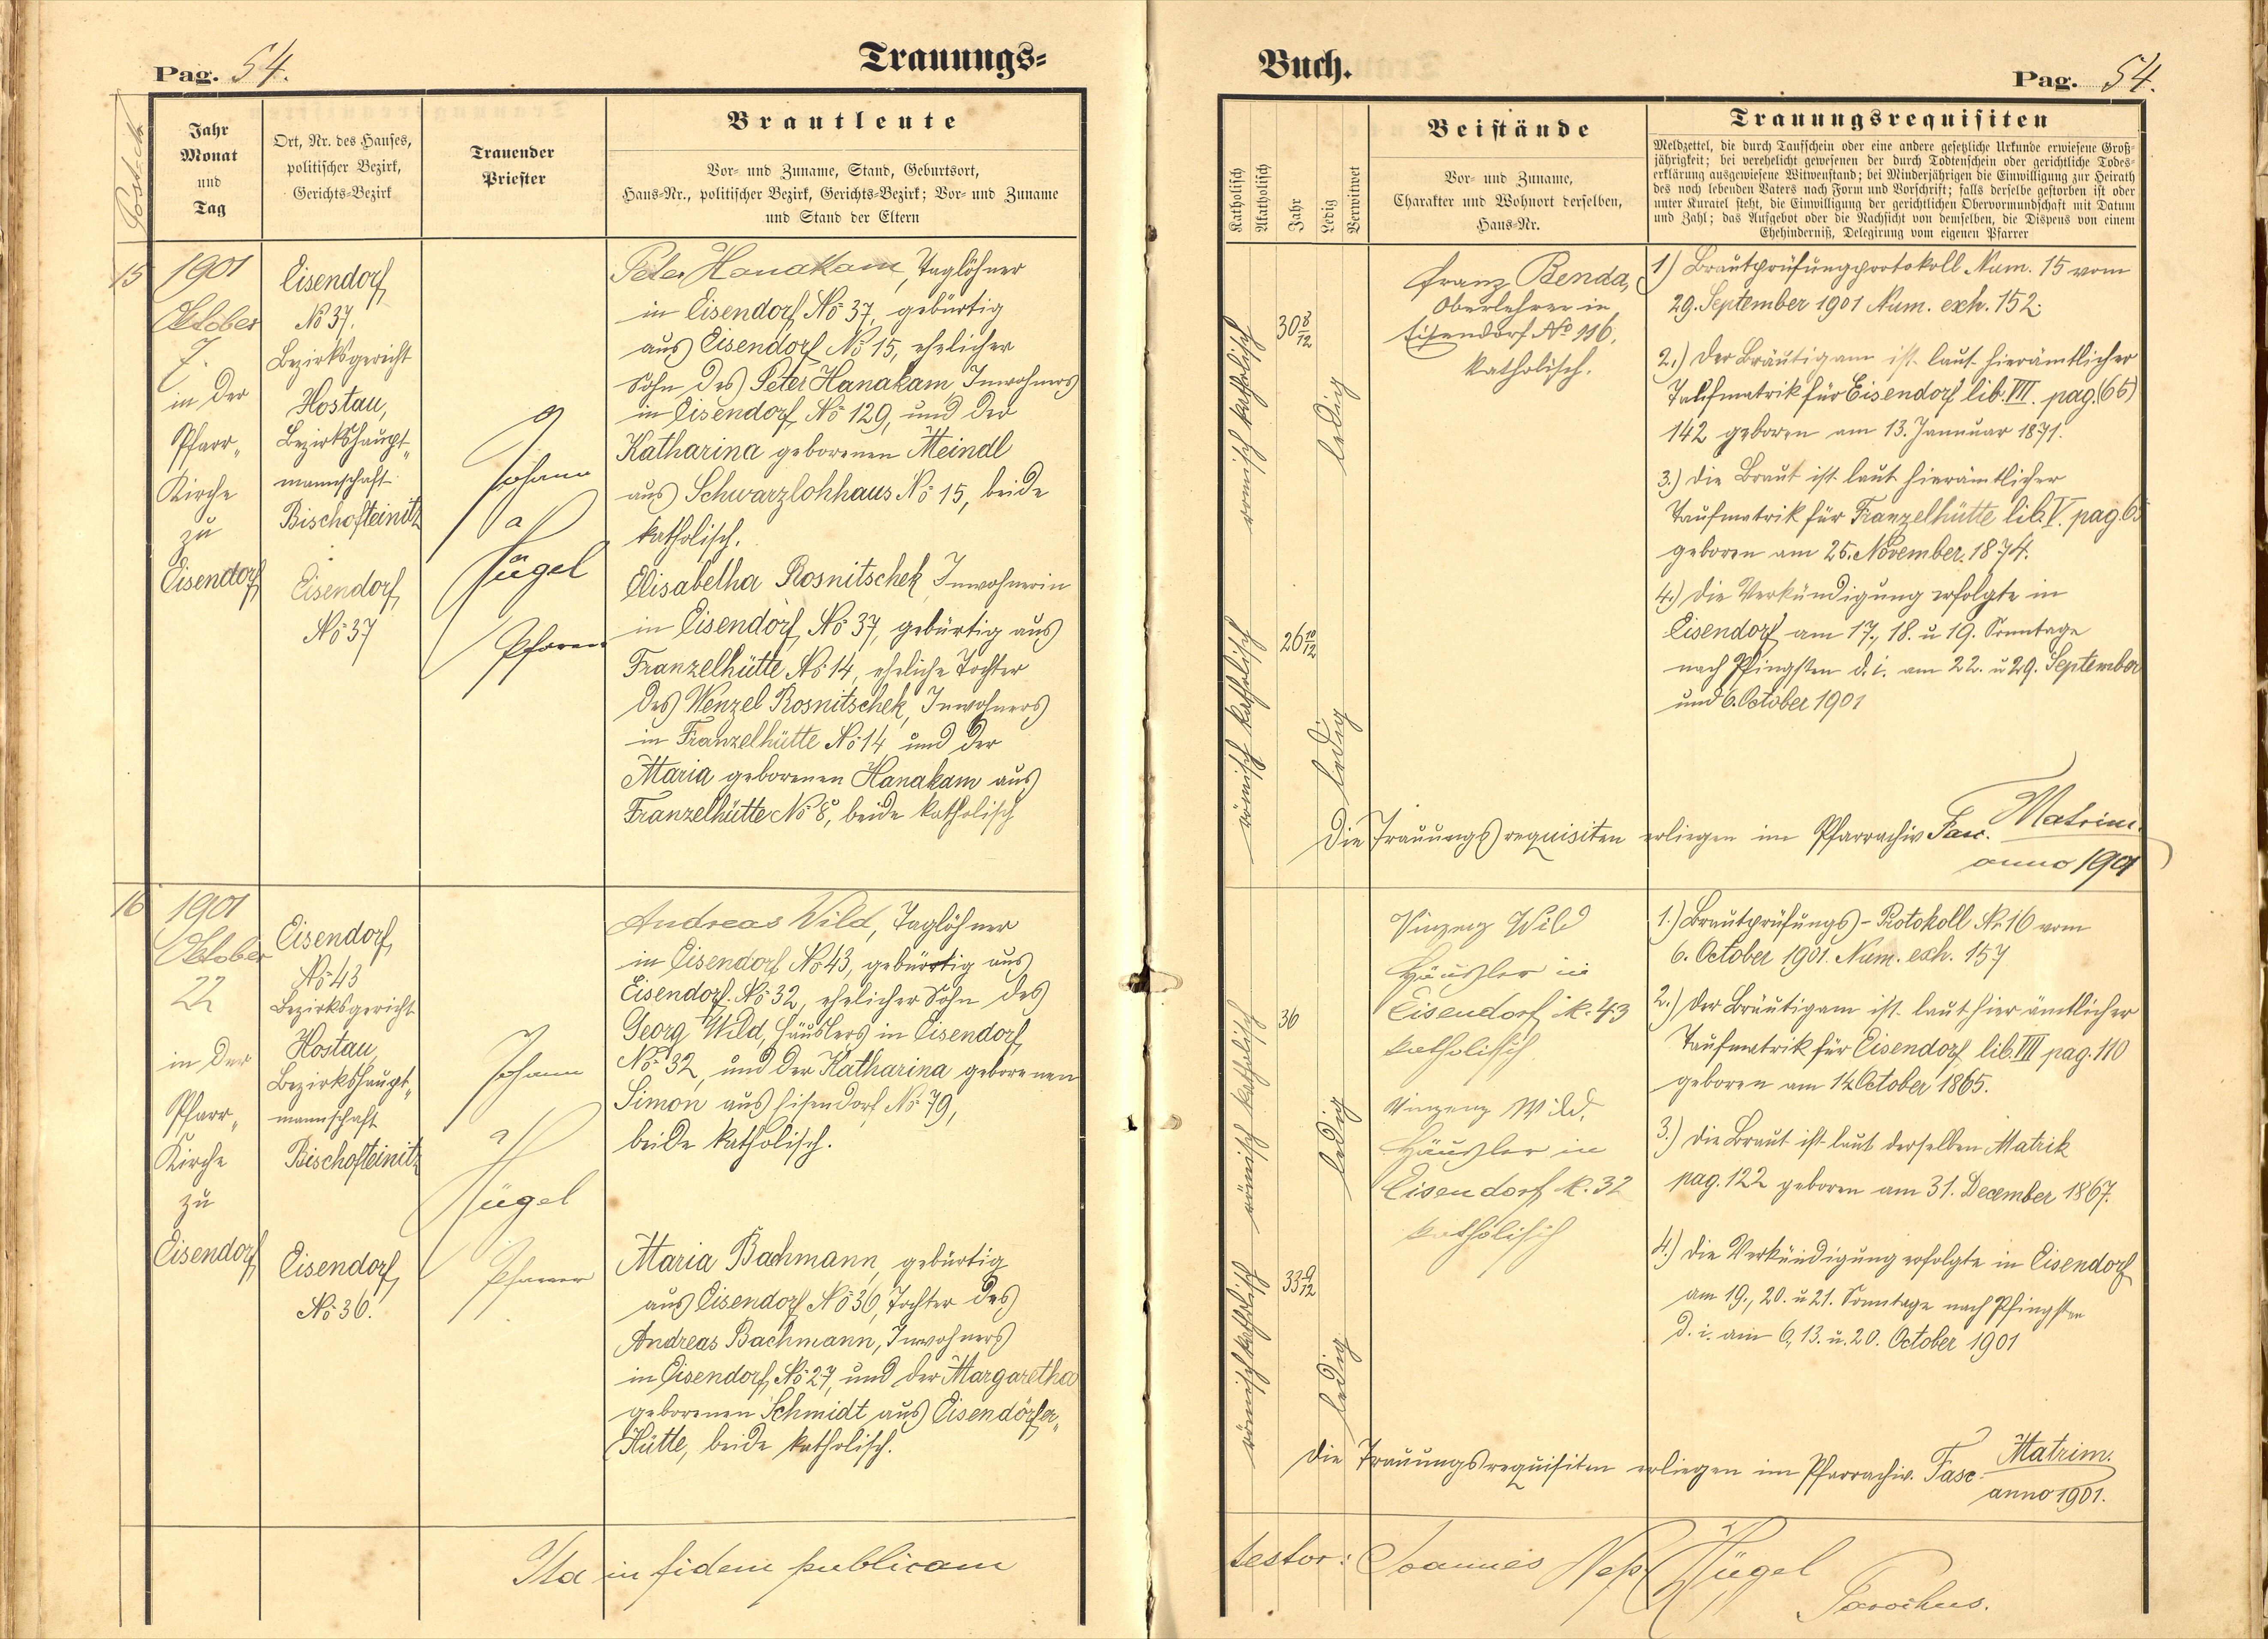 Pag. 54.
Trauungs=
Jahr
Monat
und
Tag
Ort, Nr. des Hauses,
politischer Bezirk,
Gerichts-Bezirk
Trauender
Priester
Brautleute
Vor- und Zuname, Stand, Geburtsort,
Haus-Nr., politischer Bezirk, Gerichts-Bezirk; Vor- und Zuname
und Stand der Eltern
15
1901
Oktober
7.
in der
Pfarr„
Kirche
zu
Eisendorf
Eisendorf,
No 37.
Bezirksgericht
Hostau,
Bezirkshaupt„
mannschaft
Bischofteinitz
Eisendorf,
No 37
Johann
Hügel
Pfarrer
Peter Hanakam, Taglöhner
in Eisendorf, No 37, gebürtig
aus Eisendorf No 15, ehelicher
Sohn des Peter Hanakam, Inwohners
in Eisendorf, No 129, und der
Katharina geborenen Meindl
aus Schwarzlohhaus No 15, beide
katholisch.
Elisabetha Rosnitschek, Inwohnerin
in Eisendorf, No 37, gebürtig aus
Franzelhütte No 14, eheliche Tochter
des Wenzel Rosnitschek, Inwohners
in Franzelhütte No 14, und der
Maria geborenen Hanakam aus
Franzelhütte No 8, beide katholisch
16
1901
Oktober
22
in der
Pfarr„
Kirche
zu
Eisendorf
Eisendorf,
No 43
Bezirksgericht
Hostau,
Bezirkshaupt„
mannschaft
Bischofteinitz
Eisendorf,
No 36.
Johann
Hügel
Pfarrer
Andreas Wild, Taglöhner
in Eisendorf No 43, gebürtig aus
Eisendorf No 32, ehelicher Sohn des
Georg Wild, Häuslers in Eisendorf,
No 32, und der Katharina geborenen
Simon aus Eisendorf No 79,
beide katholisch.
Maria Bachmann, gebürtig
aus Eisendorf No 36, Tochter des
Andreas Bachmann, Inwohners
in Eisendorf, No 27, und der Margaretha
geborenen Schmidt aus Eisendörfer„
Hütte, beide katholisch.
Ita in fidem publicam
Buch.
Pag. 54.
Katholisch
Akatholisch
Jahr
Ledig
Verwitwet
Beistände
Vor- und Zuname,
Charakter und Wohnort derselben,
Haus-Nr.
Trauungsrequisiten
Meldzettel, die durch Taufschein oder eine andere gesetzliche Urkunde erwiesene Groß-
jährigkeit; bei verehelicht gewesenen der durch Todtenschein oder gerichtliche Todes-
erklärung ausgewiesene Witwenstand; bei Minderjährigen die Einwilligung zur Heirath
des noch lebenden Vaters nach Form und Vorschrift; falls derselbe gestorben ist oder
unter Kuratel steht, die Einwilligung der gerichtlichen Obervormundschaft mit Datum
und Zahl; das Aufgebot oder die Nachsicht von demselben, die Dispens von einem
Ehehinderniß, Delegirung vom eigenen Pfarrer
römisch katholisch
30 8/12
ledig
römisch katholisch
26 10/12
ledig
Franz Benda,
Oberlehrer in
Eisendorf No 116.
katholisch.
1) Brautprüfungprotokoll Num. 15 vom
29. September 1901 Num. exh. 152.
2.) Der Bräutigam ist laut hierämtlicher
Taufmatrik für Eisendorf lib. VIII. pag. (65)
142 geboren am 13. Jannuar 1871.
3.) Die Braut ist laut hierämtlicher
Taufmatrik für Franzelhütte lib. V. pag. 65
geboren am 25. November 1874.
4.) Die Verkündigung erfolgte in
Eisendorf am 17., 18. u 19. Sonntage
nach Pfingsten d. i. am 22. u 29. September
und 6. October 1901
Die Trauungsrequisiten erliegen im Pfarrachiv Fasc. Matrim.
anno 1901
römisch katholisch
36
ledig
römisch katholisch
33 9/12
ledig
Vinzenz Wild
Häusler in
Eisendorf N. 43
katholisch.
Vinzenz Wild,
Häusler in
Eisendorf N. 32
katholisch
1.) Brautprüfungs-Protokoll Nr. 16 vom
6. October 1901. Num. exh. 157
2.) Der Bräutigam ist laut hierämtlicher
Taufmatrik für Eisendorf, lib. VII pag. 110
geboren am 14 October 1865.
3.) Die Braut ist laut derselben Matrik
pag. 122 geboren am 31. December 1867.
4.) Die Verkündigung erfolgte in Eisendorf
am 19., 20. u 21. Sonntage nach Pfingsten
d. i. am 6., 13. u. 20. October 1901
Die Trauungsrequisiten erliegen im Pfarrachiv. Fasc. Matrim.
anno 1901.
testor: Joannes Nep. Hügel
Parochus.